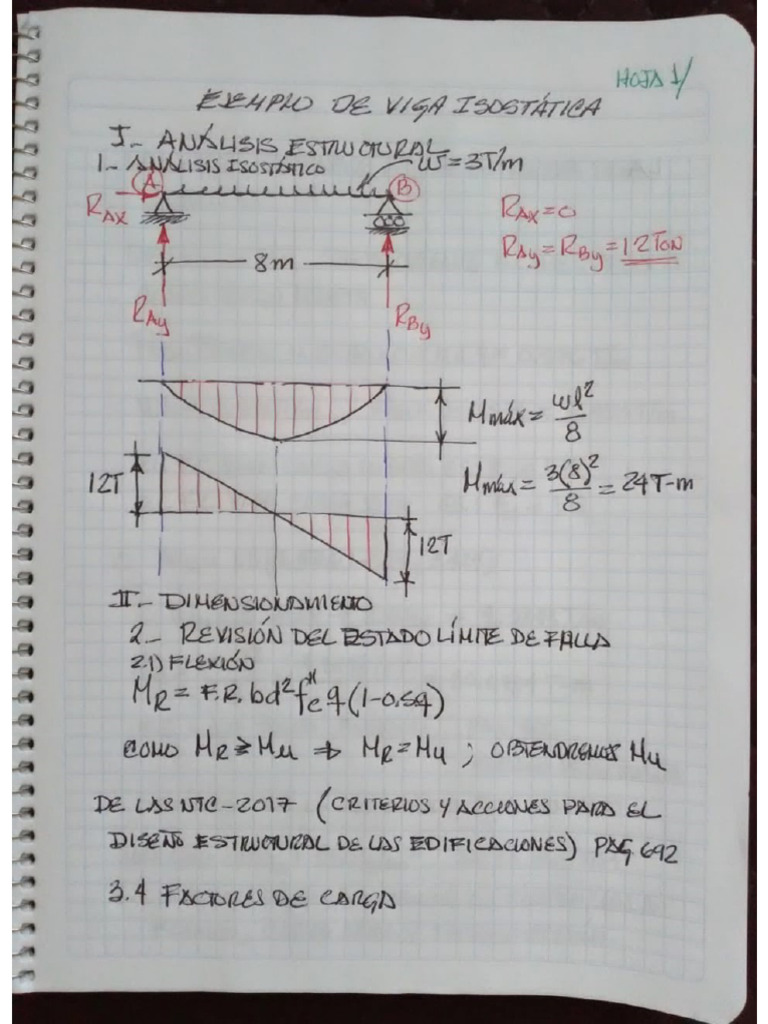 HOJA 1/
EJEMPLO DE VIGA ISOSTÁTICA
I.- ANÁLISIS ESTRUCTURAL
1.- ANÁLISIS ISOSTÁTICO
W=3T/m
A
B
RAX
RAX=0
RAy=RBy=12TON
8m
RAy
RBy
Mmáx= wl²/8
12T
Mmáx= 3(8)²/8 = 24T-m
12T
II.- DIMENSIONAMIENTO
2.- REVISIÓN DEL ESTADO LÍMITE DE FALLA
2.1) FLEXIÓN
MR = F.R. bd² f*c q (1-0.5q)
COMO MR≥Mu ⇒ MR=Mu ; OBTENDREMOS Mu
DE LAS NTC-2017 (CRITERIOS Y ACCIONES PARA EL
DISEÑO ESTRUCTURAL DE LAS EDIFICACIONES) PAG 692
3.4 FACTORES DE CARGA